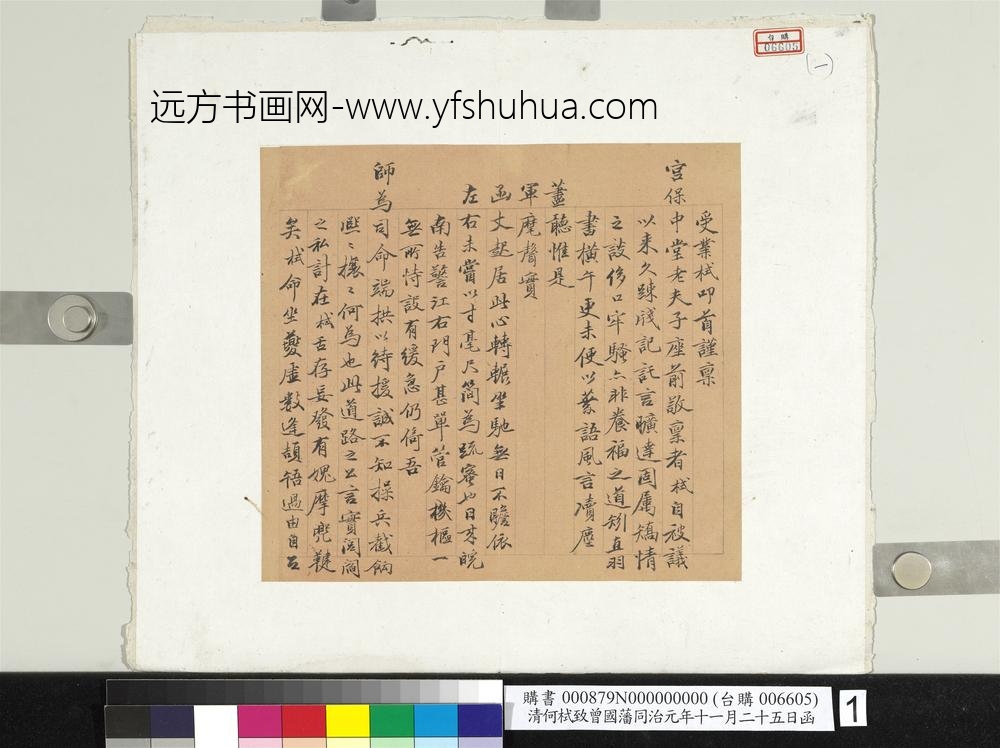 台購
06605
(一)
远方书画网-www.yfshuhua.com
受業栻叩首謹稟
宮保中堂老夫子座前敬稟者栻自被議
以来久踈牋記託言曠達固属矯情
之談侈口牢騷亦非養福之道矧直羽
書橫午更未便以蓼語風言凟塵
藎聽惟是
軍麾聲實
函丈起居此心轉輾坐馳無日不瞻依
左右未嘗以寸毫尺簡為疏密也日来皖
南告警江右門戶甚單管鑰機樞一
無所恃設有緩急仍倚吾
師為司命端拱以待援誠不知操兵截餉
熙〻攘〻何為也此道路之公言實閭閻
之私計在栻舌存妄發有媿摩兜鞬
矣栻命坐虛數逢頡牾過由自召
購書 000879N000000000 (台購 006605)
清何栻致曾國藩同治元年十一月二十五日函
1